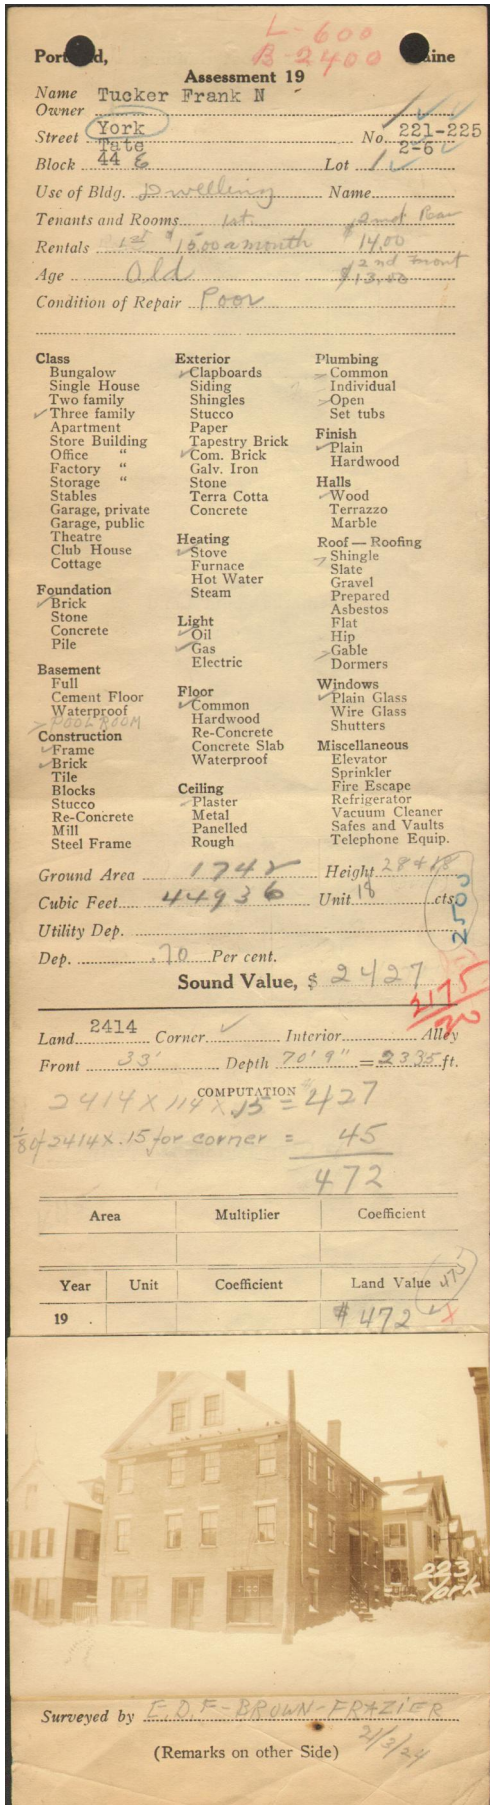 L-600
B-2400
Portland, Maine
Assessment 19
Name Tucker Frank N
Owner
Street York No. 221-225
Tate 2-6
Block 44 E Lot 1
Use of Bldg. Dwelling Name
Tenants and Rooms 1st. 2nd Rear
Rentals 1st $15.00 a month $14.00
2nd Front
Age Old $13.00
Condition of Repair Poor
Class
Bungalow
Single House
Two family
✓ Three family
Apartment
Store Building
Office "
Factory "
Storage "
Stables
Garage, private
Garage, public
Theatre
Club House
Cottage
Foundation
✓ Brick
Stone
Concrete
Pile
Basement
Full
Cement Floor
Waterproof
✓ POOL ROOM
Construction
✓ Frame
✓ Brick
Tile
Blocks
Stucco
Re-Concrete
Mill
Steel Frame
Exterior
✓ Clapboards
Siding
Shingles
Stucco
Paper
Tapestry Brick
✓ Com. Brick
Galv. Iron
Stone
Terra Cotta
Concrete
Heating
✓ Stove
Furnace
Hot Water
Steam
Light
✓ Oil
✓ Gas
Electric
Floor
✓ Common
Hardwood
Re-Concrete
Concrete Slab
Waterproof
Ceiling
✓ Plaster
Metal
Panelled
Rough
Plumbing
✓ Common
Individual
✓ Open
Set tubs
Finish
✓ Plain
Hardwood
Halls
✓ Wood
Terrazzo
Marble
Roof — Roofing
✓ Shingle
Slate
Gravel
Prepared
Asbestos
Flat
Hip
✓ Gable
Dormers
Windows
✓ Plain Glass
Wire Glass
Shutters
Miscellaneous
Elevator
Sprinkler
Fire Escape
Refrigerator
Vacuum Cleaner
Safes and Vaults
Telephone Equip.
Ground Area 1742 Height 28+18
Cubic Feet 44936 Unit 18 cts.
2500
Utility Dep.
Dep. .70 Per cent.
Sound Value, $ 2427
2175
Land 2414 Corner ✓ Interior Alley
Front 33' Depth 70' 9" = 2335 ft.
COMPUTATION
2414 X 114 X .15 = 427
1/8 of 2414 X .15 for corner = 45
472
Area Multiplier Coefficient
Year Unit Coefficient Land Value 475
19 . $472 ✓ X
223
York
Surveyed by E.D.F-BROWN-FRAZIER
(Remarks on other Side) 2/3/24